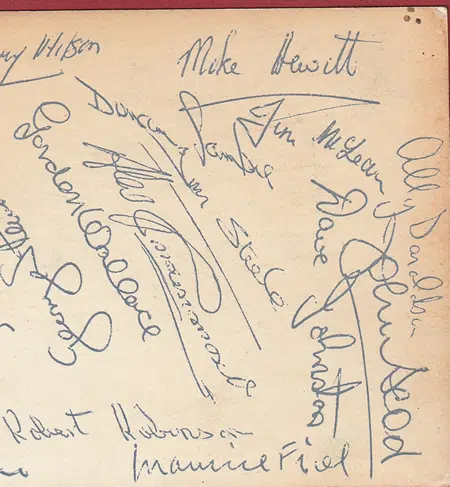 Wilson
Mike Hewitt
Duncan Lambie
Jim McLean
Ally Donaldson
Gordon Wallace
Alex Kinninmonth
Jim Steele
Dave Johnston
John
Robert Robinson
Maurice